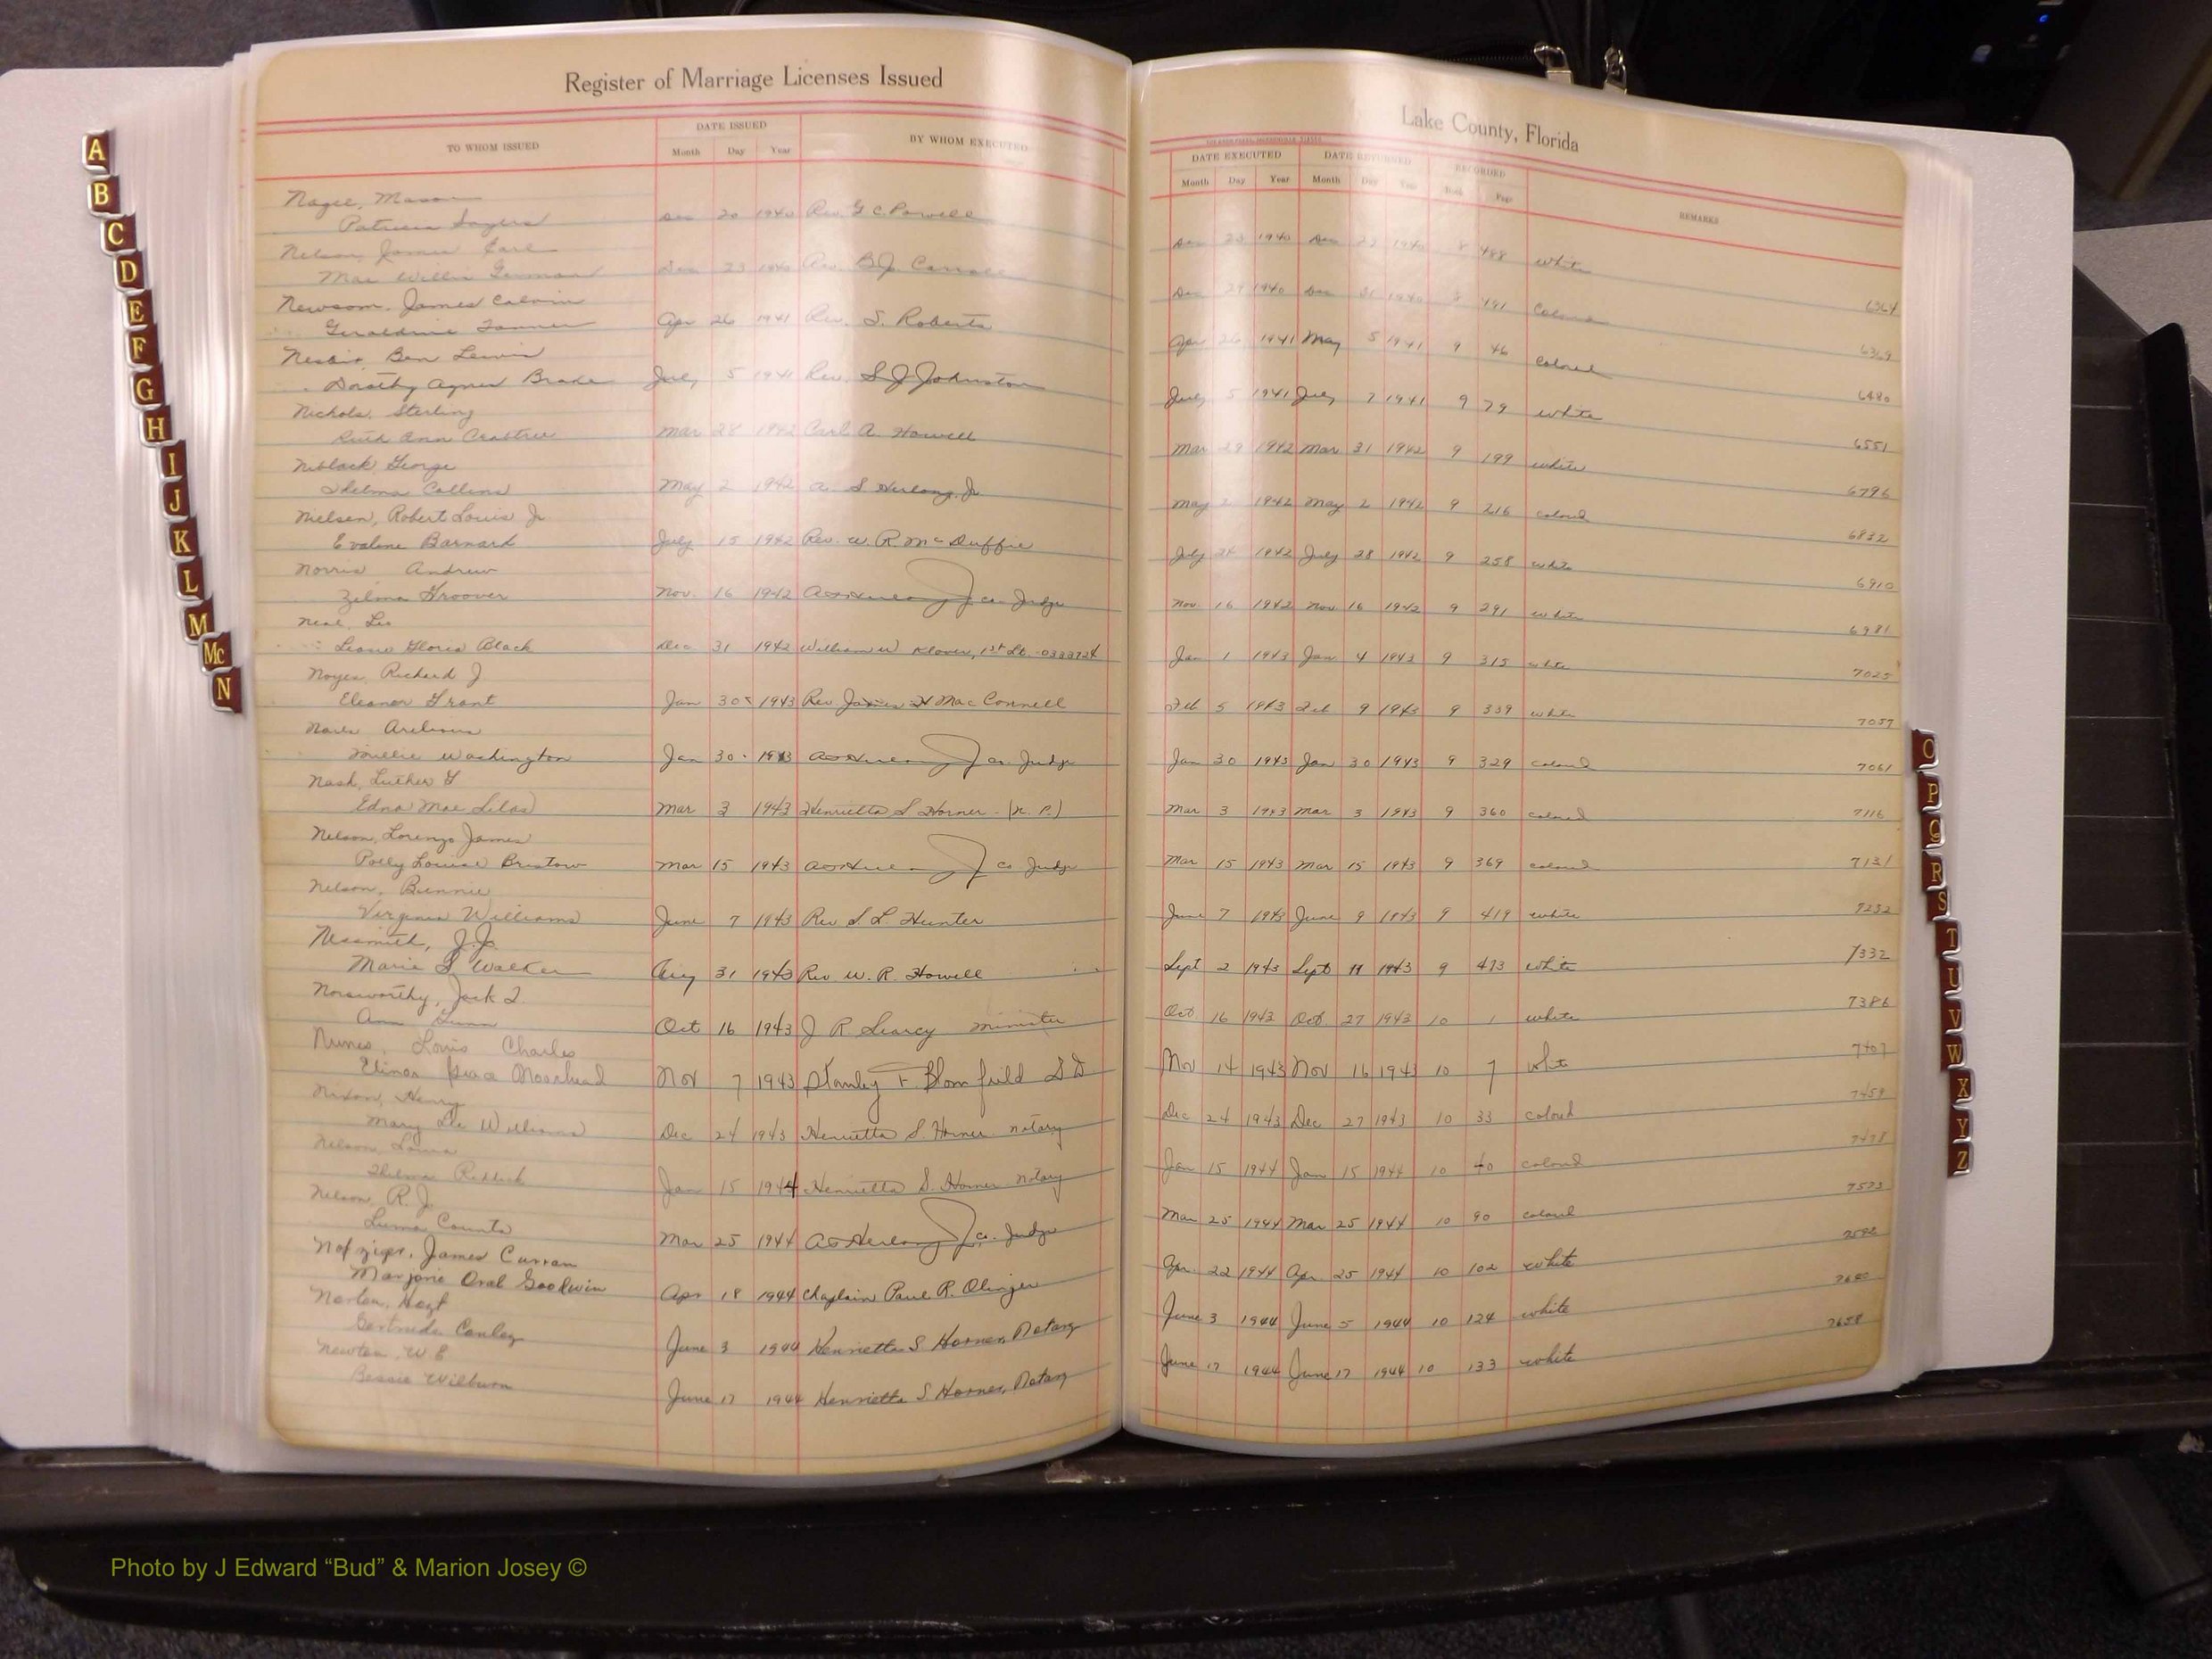 Register of Marriage Licenses Issued
Lake County, Florida
TO WHOM ISSUED
DATE ISSUED
Month Day Year
BY WHOM EXECUTED
DATE EXECUTED
Month Day Year
DATE RETURNED
Month Day Year
RECORDED
Book Page
REMARKS
Nagee, Mason
Patricia Sayers Dec 20 1940 Rev. G C. Powell Dec 23 1940 Dec 1940 8 488 white 6364
Nelson, James Earl
Mae Willie Dec 23 1940 Rev. B.J. Dec 1940 Dec 31 1940 8 491 Colored 6369
Newsom, James Calvin
Geraldine Tanner Apr 26 1941 Rev. S. Roberts Apr 26 1941 May 5 1941 9 46 colored 6480
Ben Lewis
Dorothy Agnes July 5 1941 Rev. S J Johnston July 5 1941 July 7 1941 9 79 white 6551
Nichols, Sterling
Ruth Ann Crabtree Mar 28 1942 Carl A. Howell Mar 29 1942 Mar 31 1942 9 199 white 6796
Niblack, George
Thelma Collins May 2 1942 A. S Herlong, Jr. May 2 1942 May 2 1942 9 216 colored 6832
Nielsen, Robert Louis Jr
Evalene Barnard July 15 1942 Rev. W. R. McDuffie July 24 1942 July 28 1942 9 258 white 6910
Norris Andrew
Zelma Groover Nov. 16 1942 Co. Judge Nov. 16 1942 Nov 16 1942 9 291 white 6981
Neal, Leo
Gloria Black Dec 31 1942 William W Klover, 1st Lt. Jan 1 1943 Jan 4 1943 9 315 white 7025
Noyes, Richard J
Eleanor Grant Jan 30 1943 Rev James H MacConnell Feb 5 1943 Feb 9 1943 9 339 white 7057
Washington Jan 30 1943 Co. Judge Jan 30 1943 Jan 30 1943 9 329 colored 7061
Nash, Luther G
Edna Mae Mar 3 1943 Henrietta S Horner - (N. P.) Mar 3 1943 Mar 3 1943 9 360 colored 7116
Nelson, Lorenzo James
Polly Louise Bristow Mar 15 1943 Co Judge Mar 15 1943 Mar 15 1943 9 369 colored 7131
Nelson, Bennie
Virginia Williams June 7 1943 Rev S. L. Hunter June 7 1943 June 9 1943 9 419 white 7232
Nessmith, J.J.
Marie S Walker Aug 31 1943 Rev W. R. Howell Sept 2 1943 Sept 11 1943 9 473 white 7332
Norsworthy, Jack
Ann Gunn Oct 16 1943 J R Searcy minister Oct 16 1943 Oct 27 1943 10 1 white 7386
Nunes, Louis Charles
Elinor Moorhead Nov 7 1943 Stanley F. Blomfield Nov 14 1943 Nov 16 1943 10 7 white 7407
Nixon, Henry
Mary Lee Williams Dec 24 1943 Henrietta S. Horner notary Dec 24 1943 Dec 27 1943 10 33 colored 7459
Nelson, Louis
Thelma Reddick Jan 15 1944 Henrietta S. Horner notary Jan 15 1944 Jan 15 1944 10 40 colored 7478
Nelson, R. J.
Counts Mar 25 1944 Co. Judge Mar 25 1944 Mar 25 1944 10 90 colored 7573
Nafziger, James Curran
Marjorie Oral Goodwin Apr 18 1944 Chaplain Paul R. Olinger Apr. 22 1944 Apr. 25 1944 10 102 white
Norton, Hoyt
Gertrude Conley June 3 1944 Henrietta S Horner, Notary June 3 1944 June 5 1944 10 124 white
Newton, W.E
Bessie Wilburn June 17 1944 Henrietta S Horner, Notary June 17 1944 June 17 1944 10 133 white 7658
A
B
C
D
E
F
G
H
I
J
K
L
M
Mc
N
O
P
Q
R
S
T
U
V
W
X
Y
Z
Photo by J Edward “Bud” & Marion Josey ©